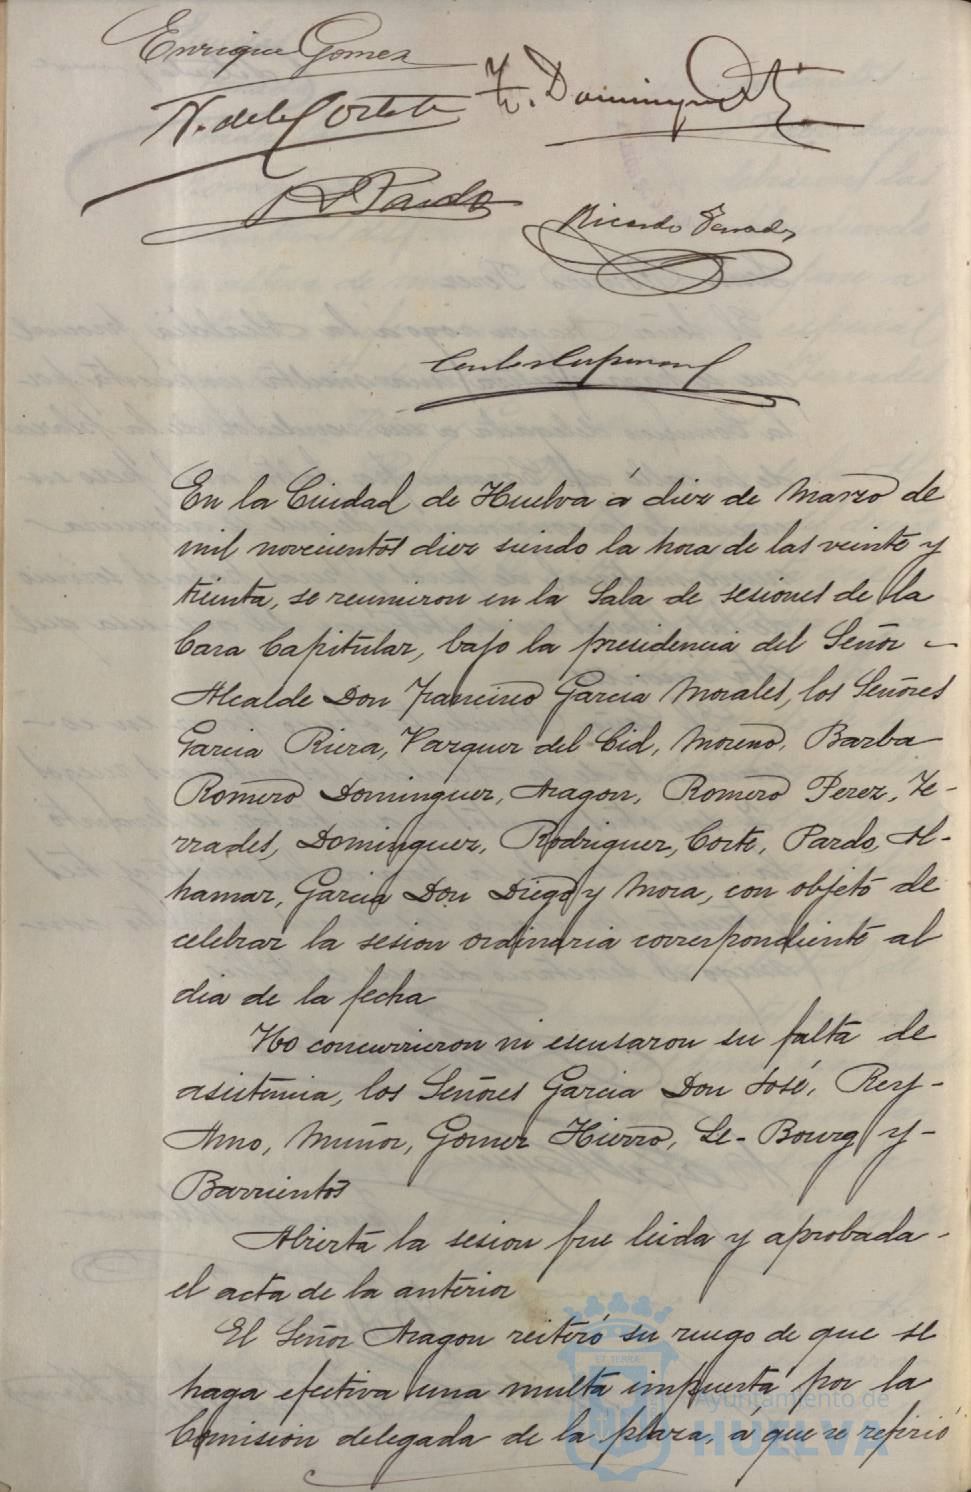 Enrique Gomez
N. de la Corte
F. Dominguez
Pardo
Ricardo Terrades
En la Ciudad de Huelva á diez de Marzo de
mil novecientos diez siendo la hora de las veinte y
treinta, se reunieron en la Sala de sesiones de la
Casa Capitular, bajo la presidencia del Señor -
Alcalde Don Francisco Garcia Morales, los Señores
Garcia Riera, Vazquez del Cid, Moreno, Barba
Romero Dominguez, Aragon, Romero Perez, Te-
rrades, Dominguez, Rodriguez, Corte, Pardo, Al-
hamar, Garcia Don Diego y Mora, con objeto de
celebrar la sesion ordinaria correspondiente al
dia de la fecha
No concurrieron ni escusaron su falta de
asistencia, los Señores Garcia Don José, Rey-
Amo, Muñoz, Gomez Hierro, Le-Bourg y -
Barrientos
Abierta la sesion fue leida y aprobada -
el acta de la anterior
El Señor Aragon reiteró su ruego de que se
haga efectiva una multa impuesta por la
Comision delegada de la plaza, á que se refirió
Ayuntamiento de
HUELVA